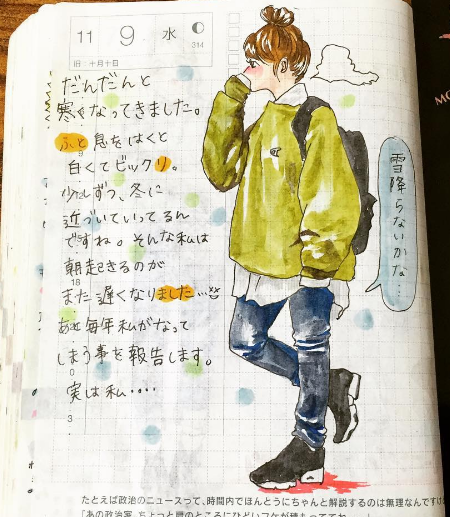 11 9 水 314
旧:十月十日
だんだんと
寒くなってきました。
ふと息をはくと
白くてビックリ。
少しずつ、冬に
近づいていってるん
ですね。そんな私は
朝起きるのが
また遅くなりました…
あと毎年私がなって
しまう事を報告します。
実は私・・・・
雪降らないかな…
MO
たとえば政治のニュースって、時間内でほんとうにちゃんと解説するのは無理なんですけ
「あの政治家、ちょっと肩のところにひどいフケが積もってて